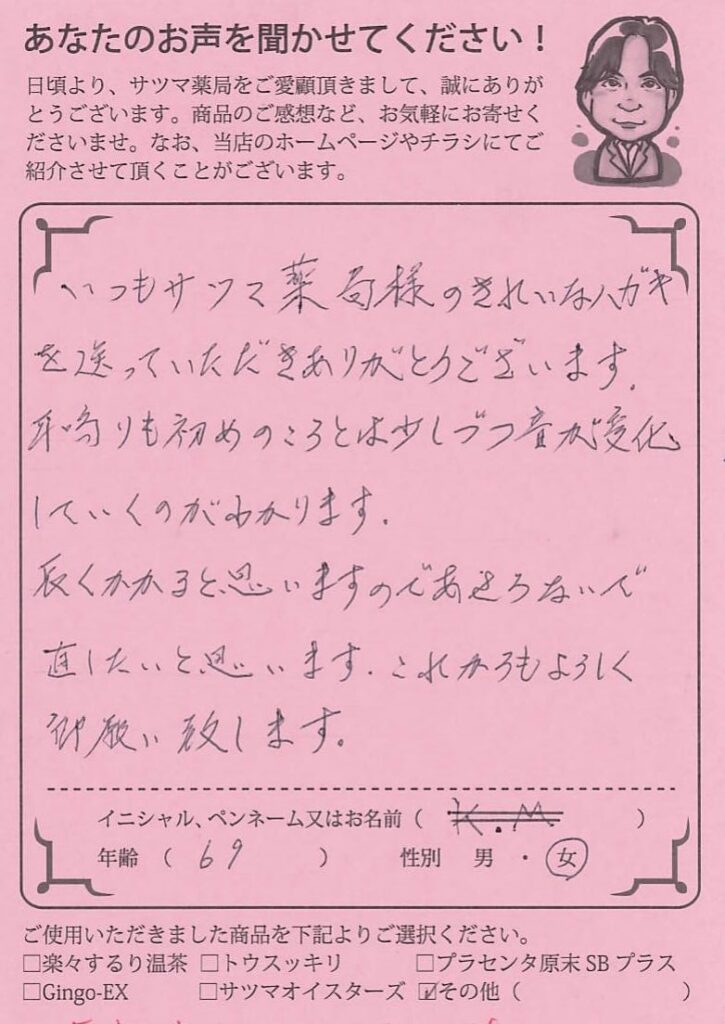 あなたのお声を聞かせてください！
日頃より、サツマ薬局をご愛顧頂きまして、誠にありが
とうございます。商品のご感想など、お気軽にお寄せく
ださいませ。なお、当店のホームページやチラシにてご
紹介させて頂くことがございます。
いつもサツマ薬局様のきれいなハガキ
を送っていただきありがとうございます。
耳鳴りも初めのころとは少しづつ音が変化
していくのがわかります。
長くかかると思いますのであせらないで
直したいと思います。これからもよろしく
御願い致します。
イニシャル、ペンネーム又はお名前（ K.M. ）
年齢 （ 69 ） 性別 男 ・ 女
ご使用いただきました商品を下記よりご選択ください。
□楽々するり温茶 □トウスッキリ □プラセンタ原末SBプラス
□Gingo-EX □サツマオイスターズ ☑その他（ ）